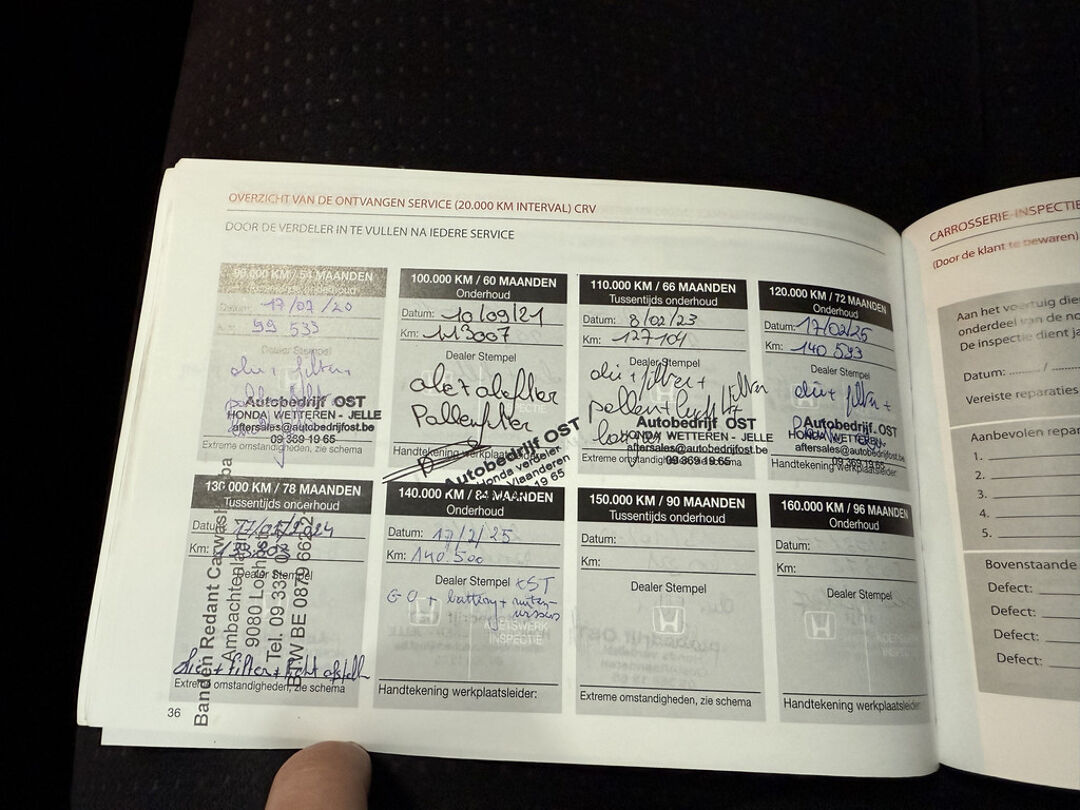 OVERZICHT VAN DE ONTVANGEN SERVICE (20.000 KM INTERVAL) CRV
DOOR DE VERDELER IN TE VULLEN NA IEDERE SERVICE
90.000 KM / 54 MAANDEN
Tussentijds onderhoud
Datum: 17/07/20
Km: 99 533
Dealer Stempel
olie + filters
Autobedrijf OST
HONDA WETTEREN - JELLE
aftersales@autobedrijfost.be
09 369 19 65
Extreme omstandigheden, zie schema
100.000 KM / 60 MAANDEN
Onderhoud
Datum: 10/09/21
Km: 113007
Dealer Stempel
olie + oliefilter
Pollenfilter
Autobedrijf OST
Honda verdeler
Vlaanderen
19 65
Handtekening werkplaatsleider:
110.000 KM / 66 MAANDEN
Tussentijds onderhoud
Datum: 8/02/23
Km: 127104
Dealer Stempel
olie + filter +
pollen + lucht filter
Autobedrijf OST
HONDA WETTEREN - JELLE
aftersales@autobedrijfost.be
09 369 19 65
Extreme omstandigheden, zie schema
120.000 KM / 72 MAANDEN
Onderhoud
Datum: 17/02/25
Km: 140 593
Dealer Stempel
olie + filter +
Autobedrijf OST
HONDA WETTEREN
aftersales@autobedrijfost.be
09 369 19 65
Handtekening werkplaatsleider:
130.000 KM / 78 MAANDEN
Tussentijds onderhoud
Datum:
Km:
Dealer Stempel
Banden Redant Carwash
Ambachtenlaan
9080 Loch
Tel. 09 33
BTW BE 0879
Extreme omstandigheden, zie schema
140.000 KM / 84 MAANDEN
Onderhoud
Datum: 17/2/25
Km: 140.500
Dealer Stempel OST
GO + battery + ruiten-
wissers
KOETSWERK
INSPECTIE
Handtekening werkplaatsleider:
150.000 KM / 90 MAANDEN
Tussentijds onderhoud
Datum:
Km:
Dealer Stempel
Extreme omstandigheden, zie schema
160.000 KM / 96 MAANDEN
Onderhoud
Datum:
Km:
Dealer Stempel
Handtekening werkplaatsleider:
36
CARROSSERIE-INSPECTIE
(Door de klant te bewaren)
Aan het voertuig die
onderdeel van de no
De inspectie dient ja
Datum: ......... / .........
Vereiste reparaties
Aanbevolen repar
1.
2.
3.
4.
5.
Bovenstaande
Defect:
Defect:
Defect:
Defect: